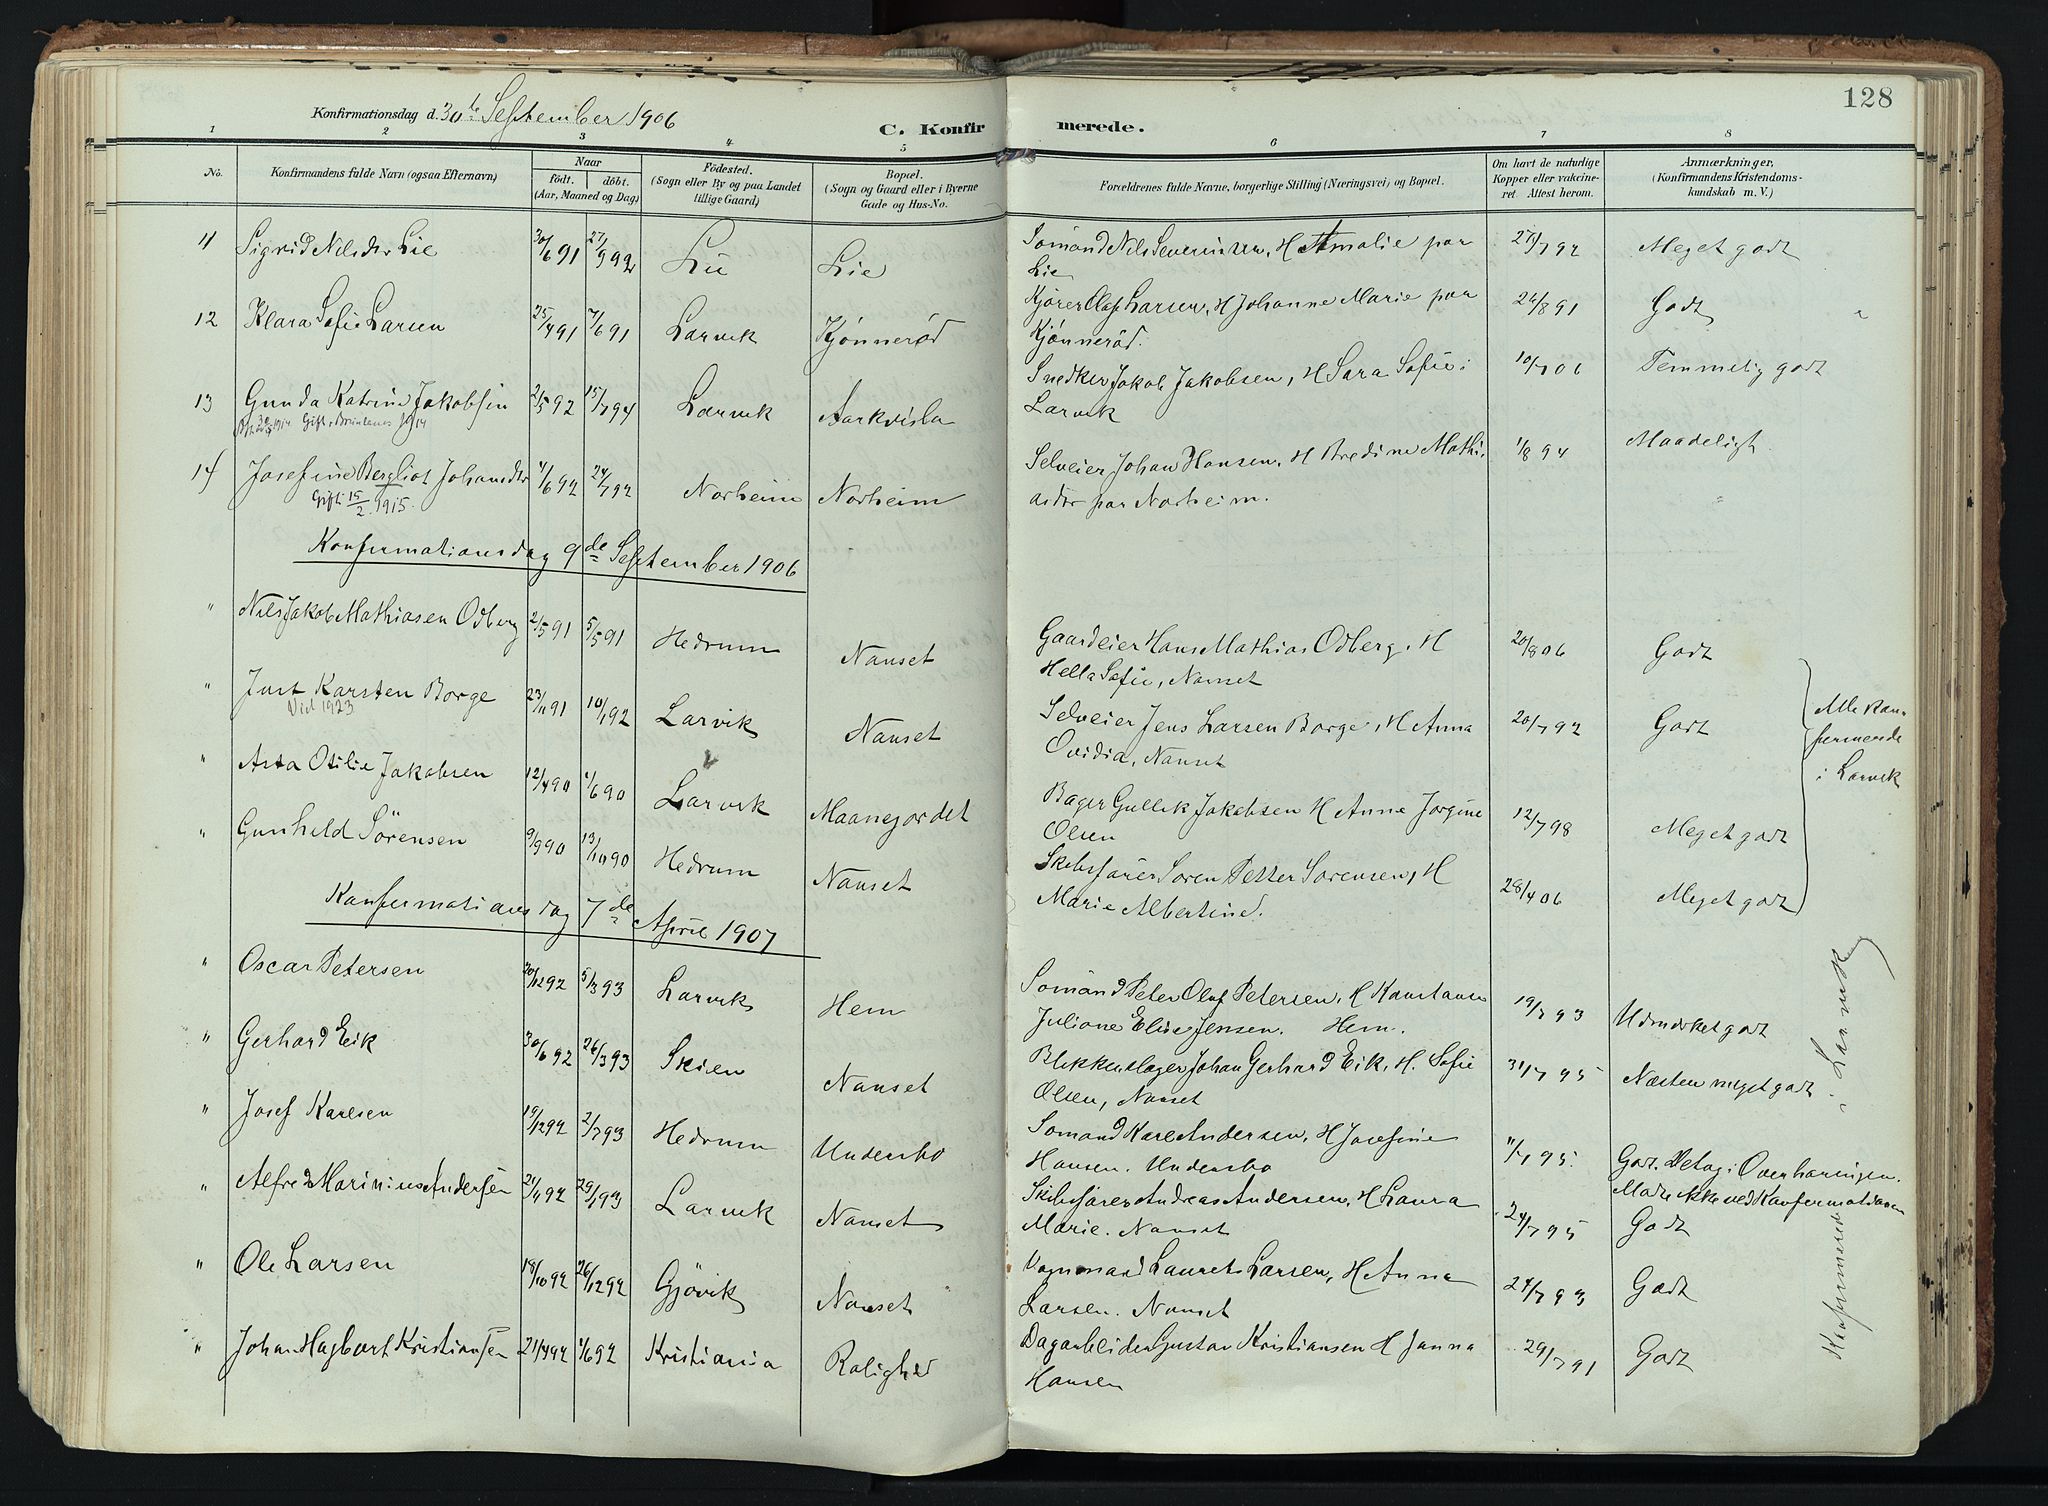 128
Konfirmationsdag d. 30te September 1906
C. Konfirmerede.
1 2 3 4 5 6 7 8
No. Konfirmandens fulde Navn (ogsaa Efternavn) Naar født. døbt. (Aar, Maaned og Dag) Fødested. (Sogn eller By og paa Landet tillige Gaard) Bopæl. (Sogn og Gaard eller i Byerne Gade og Hus-No. Forældrenes fulde Navne, borgerlige Stilling (Næringsvei) og Bopæl. Om havt de naturlige Kopper eller vakcineret Attest herom. Anmærkninger, (Konfirmandens Kristendomskundskab m. V.)
11 Sigrid Nilsdtr Lie 30/6 91 27/3 92 Lie Lie Sömand Nils Severinsen, H Amalie paa 27/7 92 Meget godt
Lie
12 Klara Sofie Larsen 25/4 91 7/6 91 Larvik Kjönneröd Kjører Olaf Larsen, H Johanne Marie paa 24/8 91 Godt
Kjönneröd.
13 Gunda Katrine Jakobsen 2/5 92 15/7 94 Larvik Aarkvisla Snedker Jakob Jakobsen, H Sara Sofie i 10/7 06 Temmelig godt
Larvik
14 Josefine Bergliot Johansdtr 4/6 92 24/7 92 Norheim Norheim Selveier Johan Hansen, H Bredine Mathi- 1/8 94 Maadeligt
Gift 15/2 1915. asdtr paa Norheim.
Konfirmationsdag 9de September 1906
" Nils Jakob Mathiasen Odberg 2/5 91 5/5 91 Hedrum Nanset Gaardeier Hans Mathias Odberg, H 20/8 06 Godt
Hella Sofie, Nanset
" Just Karsten Borge 23/11 91 10/1 92 Larvik Nanset Selveier Jens Larsen Borge, H Anna 20/7 92 Godt
Vid 1923 Ovidia, Nanset
Alle kon-
firmerede
i Larvik
" Asta Otilie Jakobsen 12/4 90 1/6 90 Larvik Maanejordet Bager Gullik Jakobsen H Anne Jorgine 12/7 98 Meget godt
Olsen
" Gunhild Sörensen 9/9 90 13/10 90 Hedrum Nanset Skibsförer Sören Petter Sörensen, H 28/4 06 Meget godt
Marie Albertine.
Konfirmationsdag 7de April 1907
" Oscar Petersen 20/12 92 5/3 93 Larvik Hem Sömand Peter Oluf Petersen, H Konstanse 19/7 93 Udmerket godt
Juliane Elise Jensen. Hem.
" Gerhard Eik 30/6 92 26/3 93 Skien Nanset Blikkenslager Johan Gerhard Eik, H. Sofie 31/7 95 Næsten meget godt
Olsen, Nanset
" Josef Karlsen 19/12 92 2/7 93 Hedrum Undersbo Sömand Karl Andersen, H Josefine 11/7 95. Godt. Deltog i Overhöringen.
Hansen. Undersbo Mödte ikke ved Konfirmationen
" Alfred Marinius Andersen 24/11 92 29/1 93 Larvik Nanset Skibsförer Andreas Andersen, H Laura 24/7 95 Godt
Marie. Nanset
" Ole Larsen 18/10 92 26/12 92 Gjövik Nanset Vognmand Laurets Larsen, H Anna 24/7 93 Godt
Larsen. Nanset
" Johan Hagbart Kristiansen 21/4 92 1/6 92 Kristiania Rolighed Dagarbeider Gustav Kristiansen H Janna 29/7 91 Godt
Hansen
Konfirmerede i Larvik